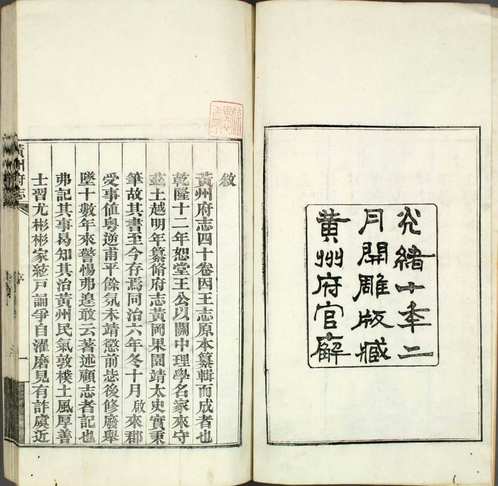 光緒十年二
月開雕版藏
黃州府官廨
敘
黃州府志四十卷因王志原本纂輯而成者也
乾隆十二年恕堂王公以關中理學名家來守
茲土越明年纂脩府志黃岡果園靖太史實秉
筆故其書至今存焉同治六年冬十月啟來郡
受事值粵逆甫平餘氛未靖懲前毖後修廢舉
墜十數年來警惕弗遑敢云著述顧志者記也
弗記其事曷知其治黃州民氣敦樸土風厚善
士習尤彬彬家絃戶誦爭自濯磨見有詐虞近
黃州府志